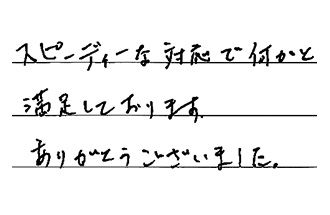 スピーディーな対応で何かと
満足しております。
ありがとうございました。